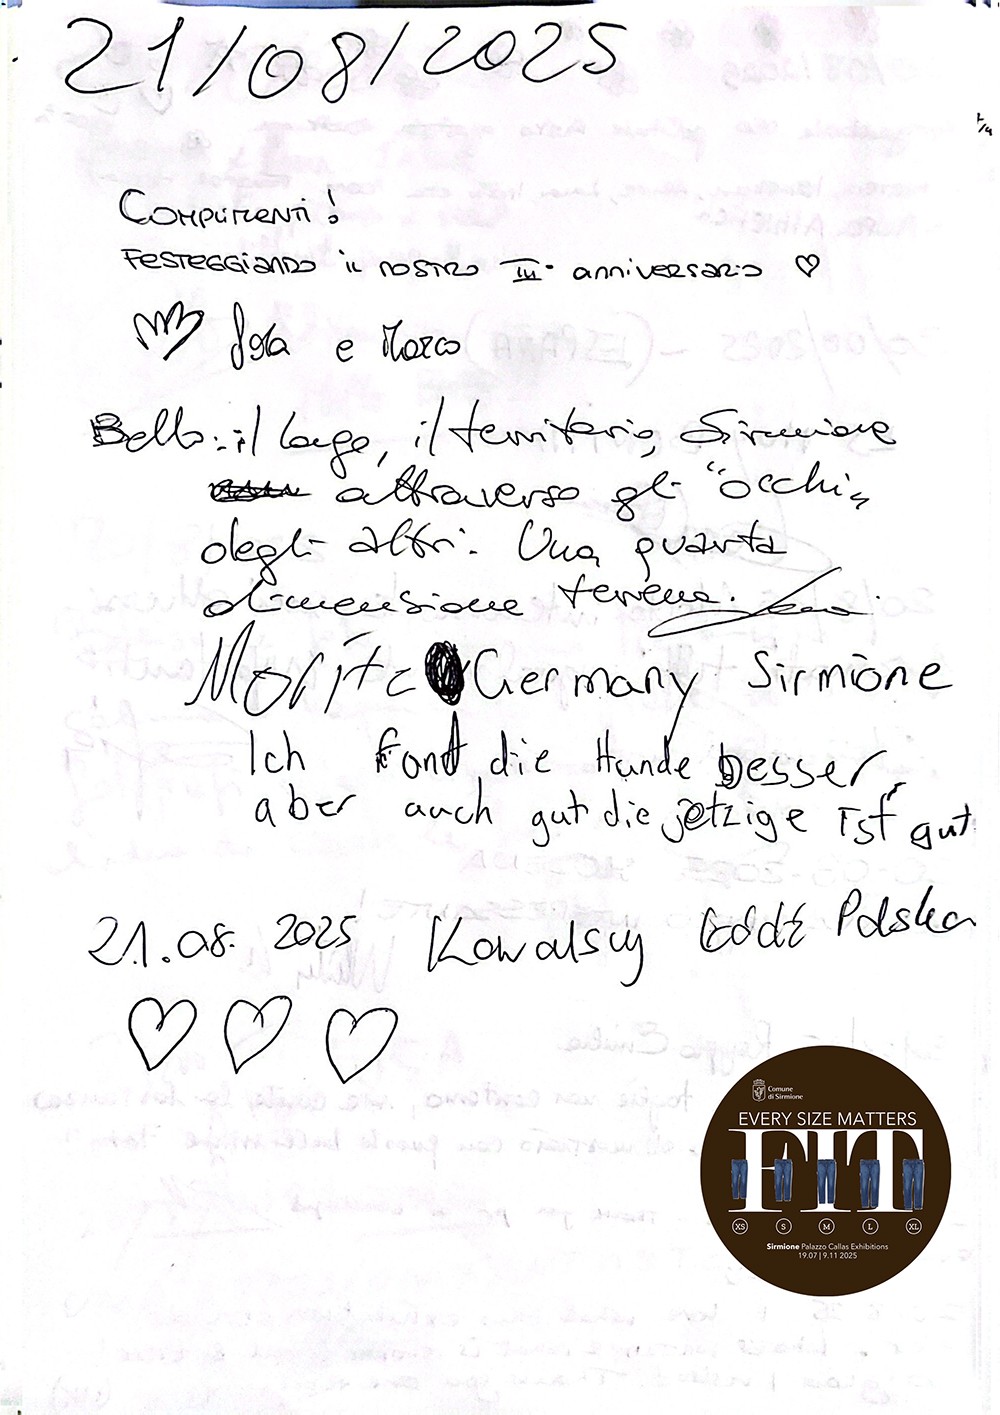 21/08/2025
COMPLIMENTI!
FESTEGGIANDO IL NOSTRO III° ANNIVERSARIO ♡
e Marco
Bello: il lago, il territorio, Sirmione
attraverso gli "occhi"
degli altri. Una quarta
dimensione terrena.
Moritz Germany Sirmione
Ich fand die Hunde besser,
aber auch gut die jetzige Ist gut
21.08. 2025 Kowalscy Łódź Polska
♡ ♡ ♡
Comune
di Sirmione
EVERY SIZE MATTERS
FIT
XS S M L XL
Sirmione Palazzo Callas Exhibitions
19.07 | 9.11 2025